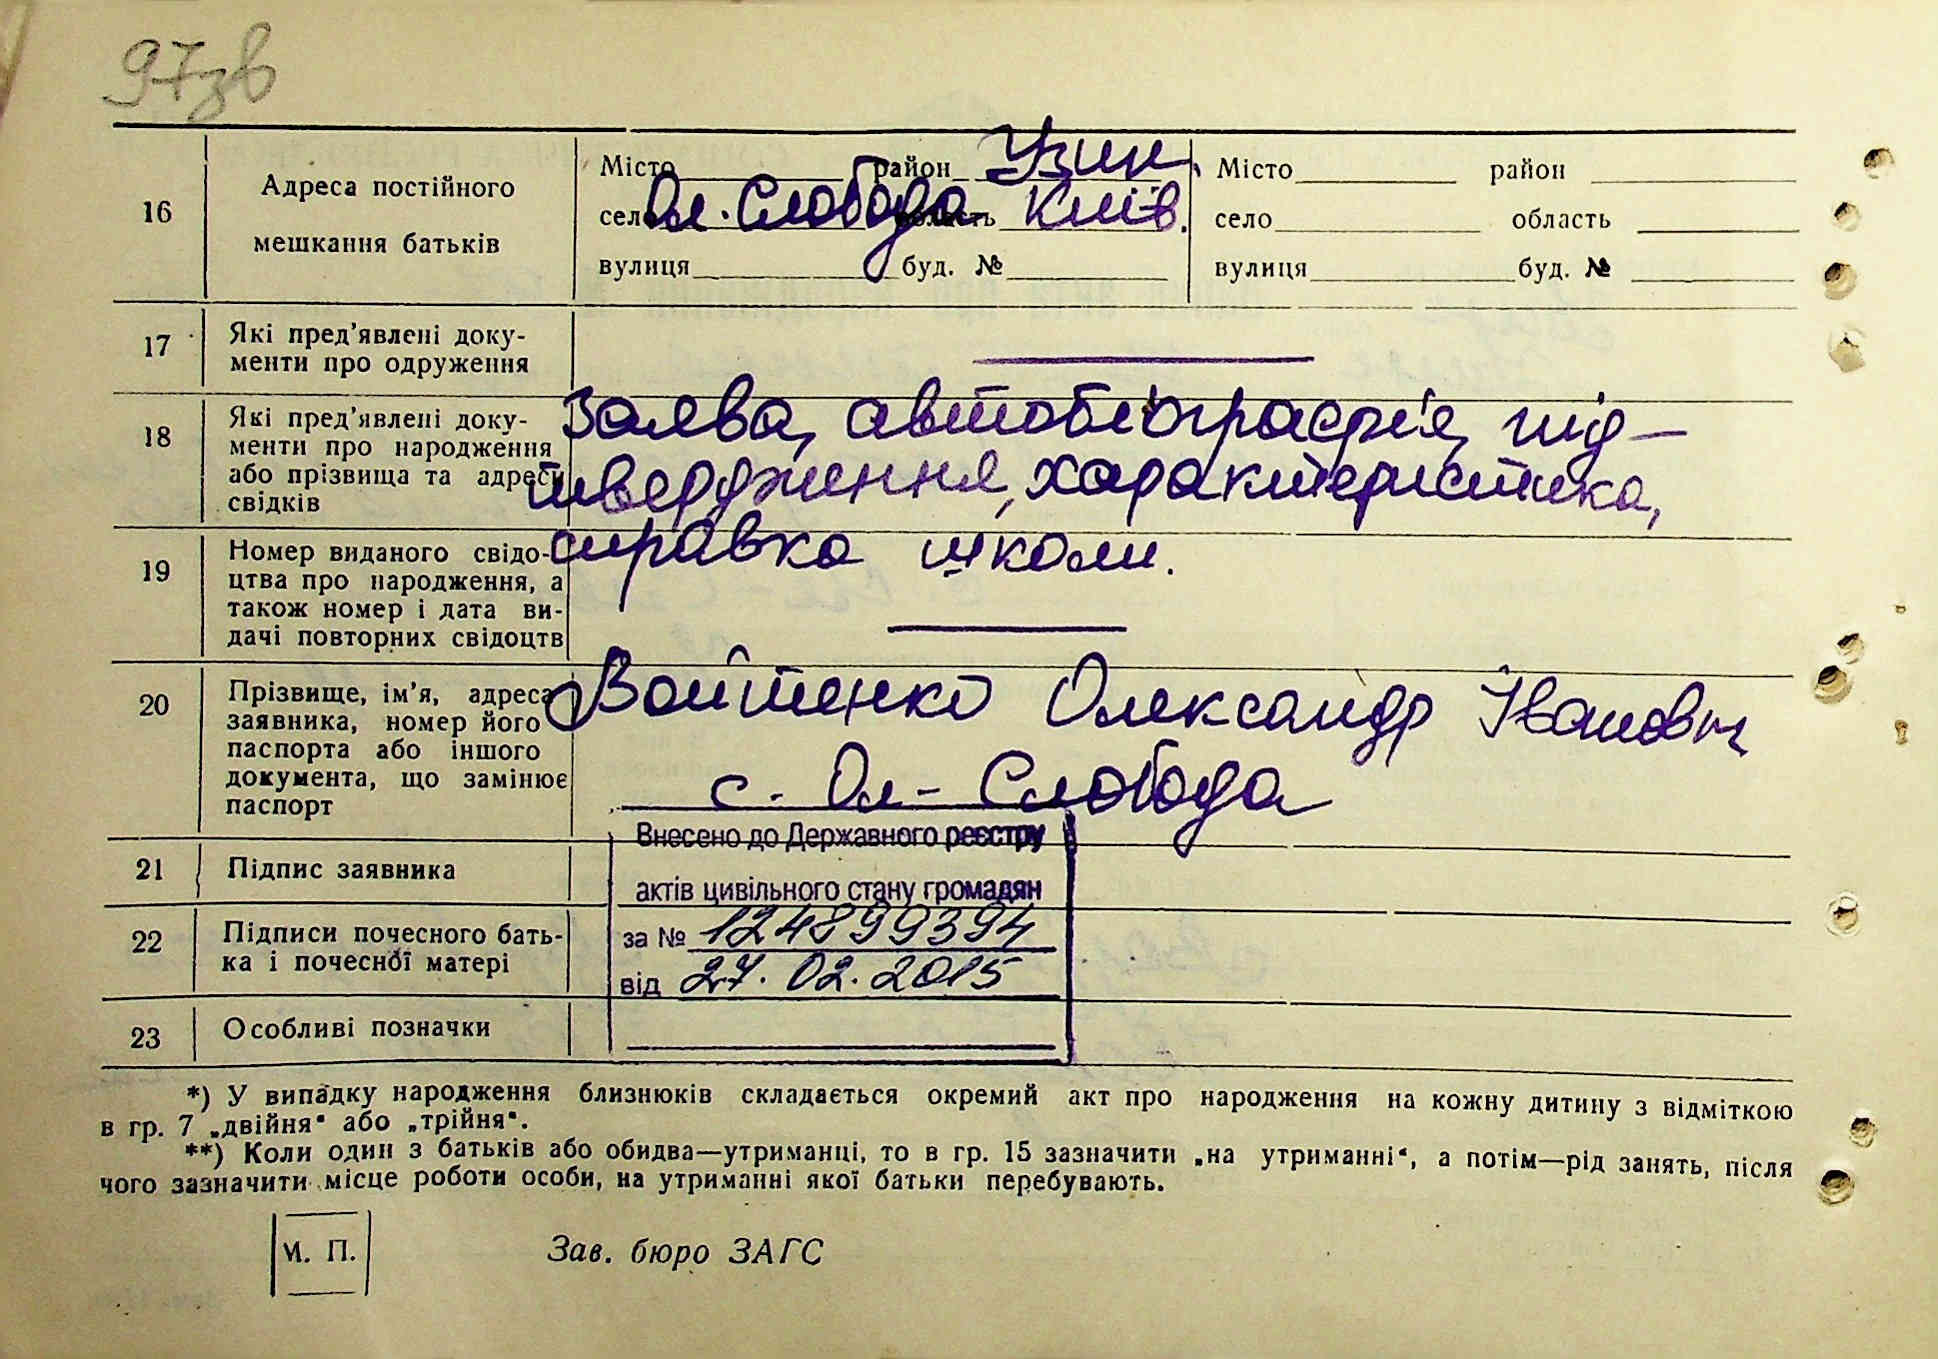 97зв
16 Адреса постійного мешкання батьків
Місто район Узин.
село Ол. Слобода область Київ.
вулиця буд. №
Місто район
село область
вулиця буд. №
17 Які пред'явлені доку-
менти про одруження
18 Які пред'явлені доку-
менти про народження
або прізвища та адреси
свідків
Заява, автобіографія, під-
твердження, характеристика,
справка школи.
19 Номер виданого свідо-
цтва про народження, а
також номер і дата ви-
дачі повторних свідоцтв
20 Прізвище, ім'я, адреса
заявника, номер його
паспорта або іншого
документа, що замінює
паспорт
Войтенко Олександр Іванович
с. Ол-Слобода
21 Підпис заявника
22 Підписи почесного бать-
ка і почесної матері
23 Особливі позначки
Внесено до Державного реєстру
актів цивільного стану громадян
за № 124899394
від 27.02.2015
*) У випадку народження близнюків складається окремий акт про народження на кожну дитину з відміткою
в гр. 7 „двійня“ або „трійня“.
**) Коли один з батьків або обидва—утриманці, то в гр. 15 зазначити „на утриманні“, а потім—рід занять, після
чого зазначити місце роботи особи, на утриманні якої батьки перебувають.
М. П.
Зав. бюро ЗАГС